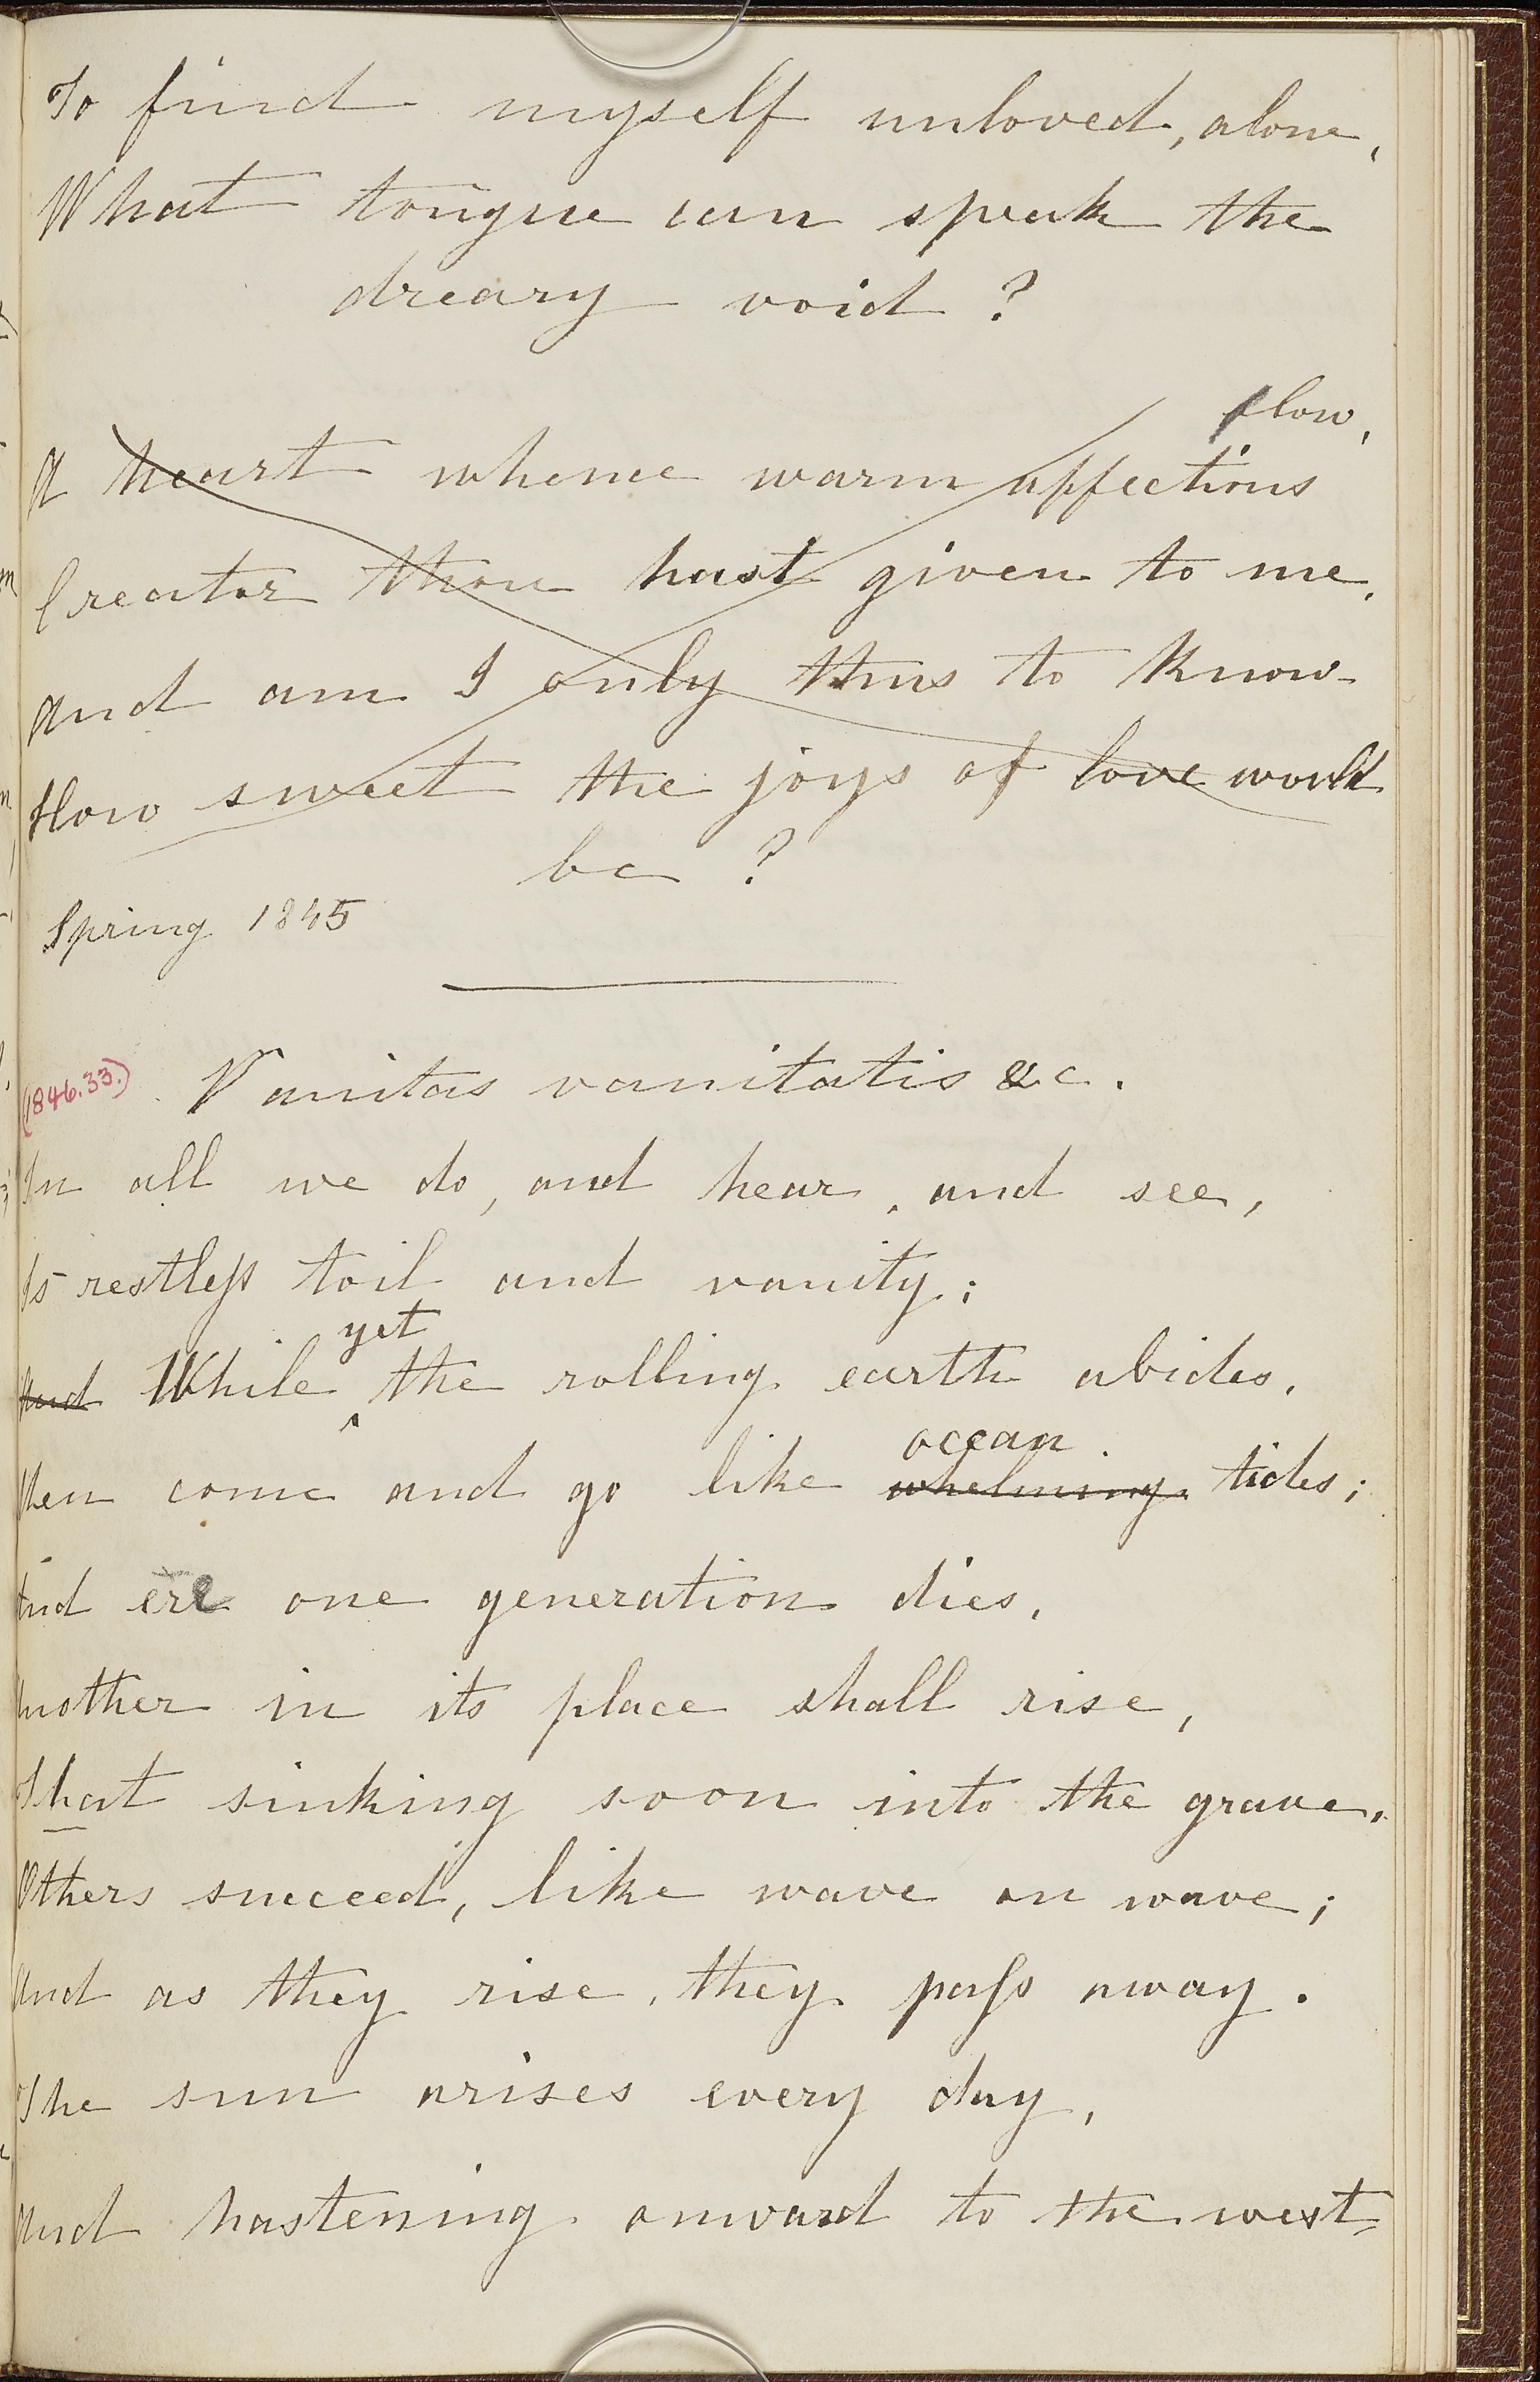 To find myself unloved, alone,
What tongue can speak the
dreary void ?
flow,
A heart whence warm affections
Creator thou hast given to me,
And am I only thus to know
How sweet the joys of love would
be ?
Spring 1845
(1846.33.)
Vanitas vanitatis &c.
In all we do, and hear, and see,
Is restless toil and vanity;
yet
And While ‸ the rolling earth abides,
ocean
Men come and go like whelming tides;
And ere one generation dies,
Another in its place shall rise,
That sinking soon into the grave,
Others succeed, like wave on wave;
And as they rise, they pass away.
The sun arises every day,
And hastening onward to the west,